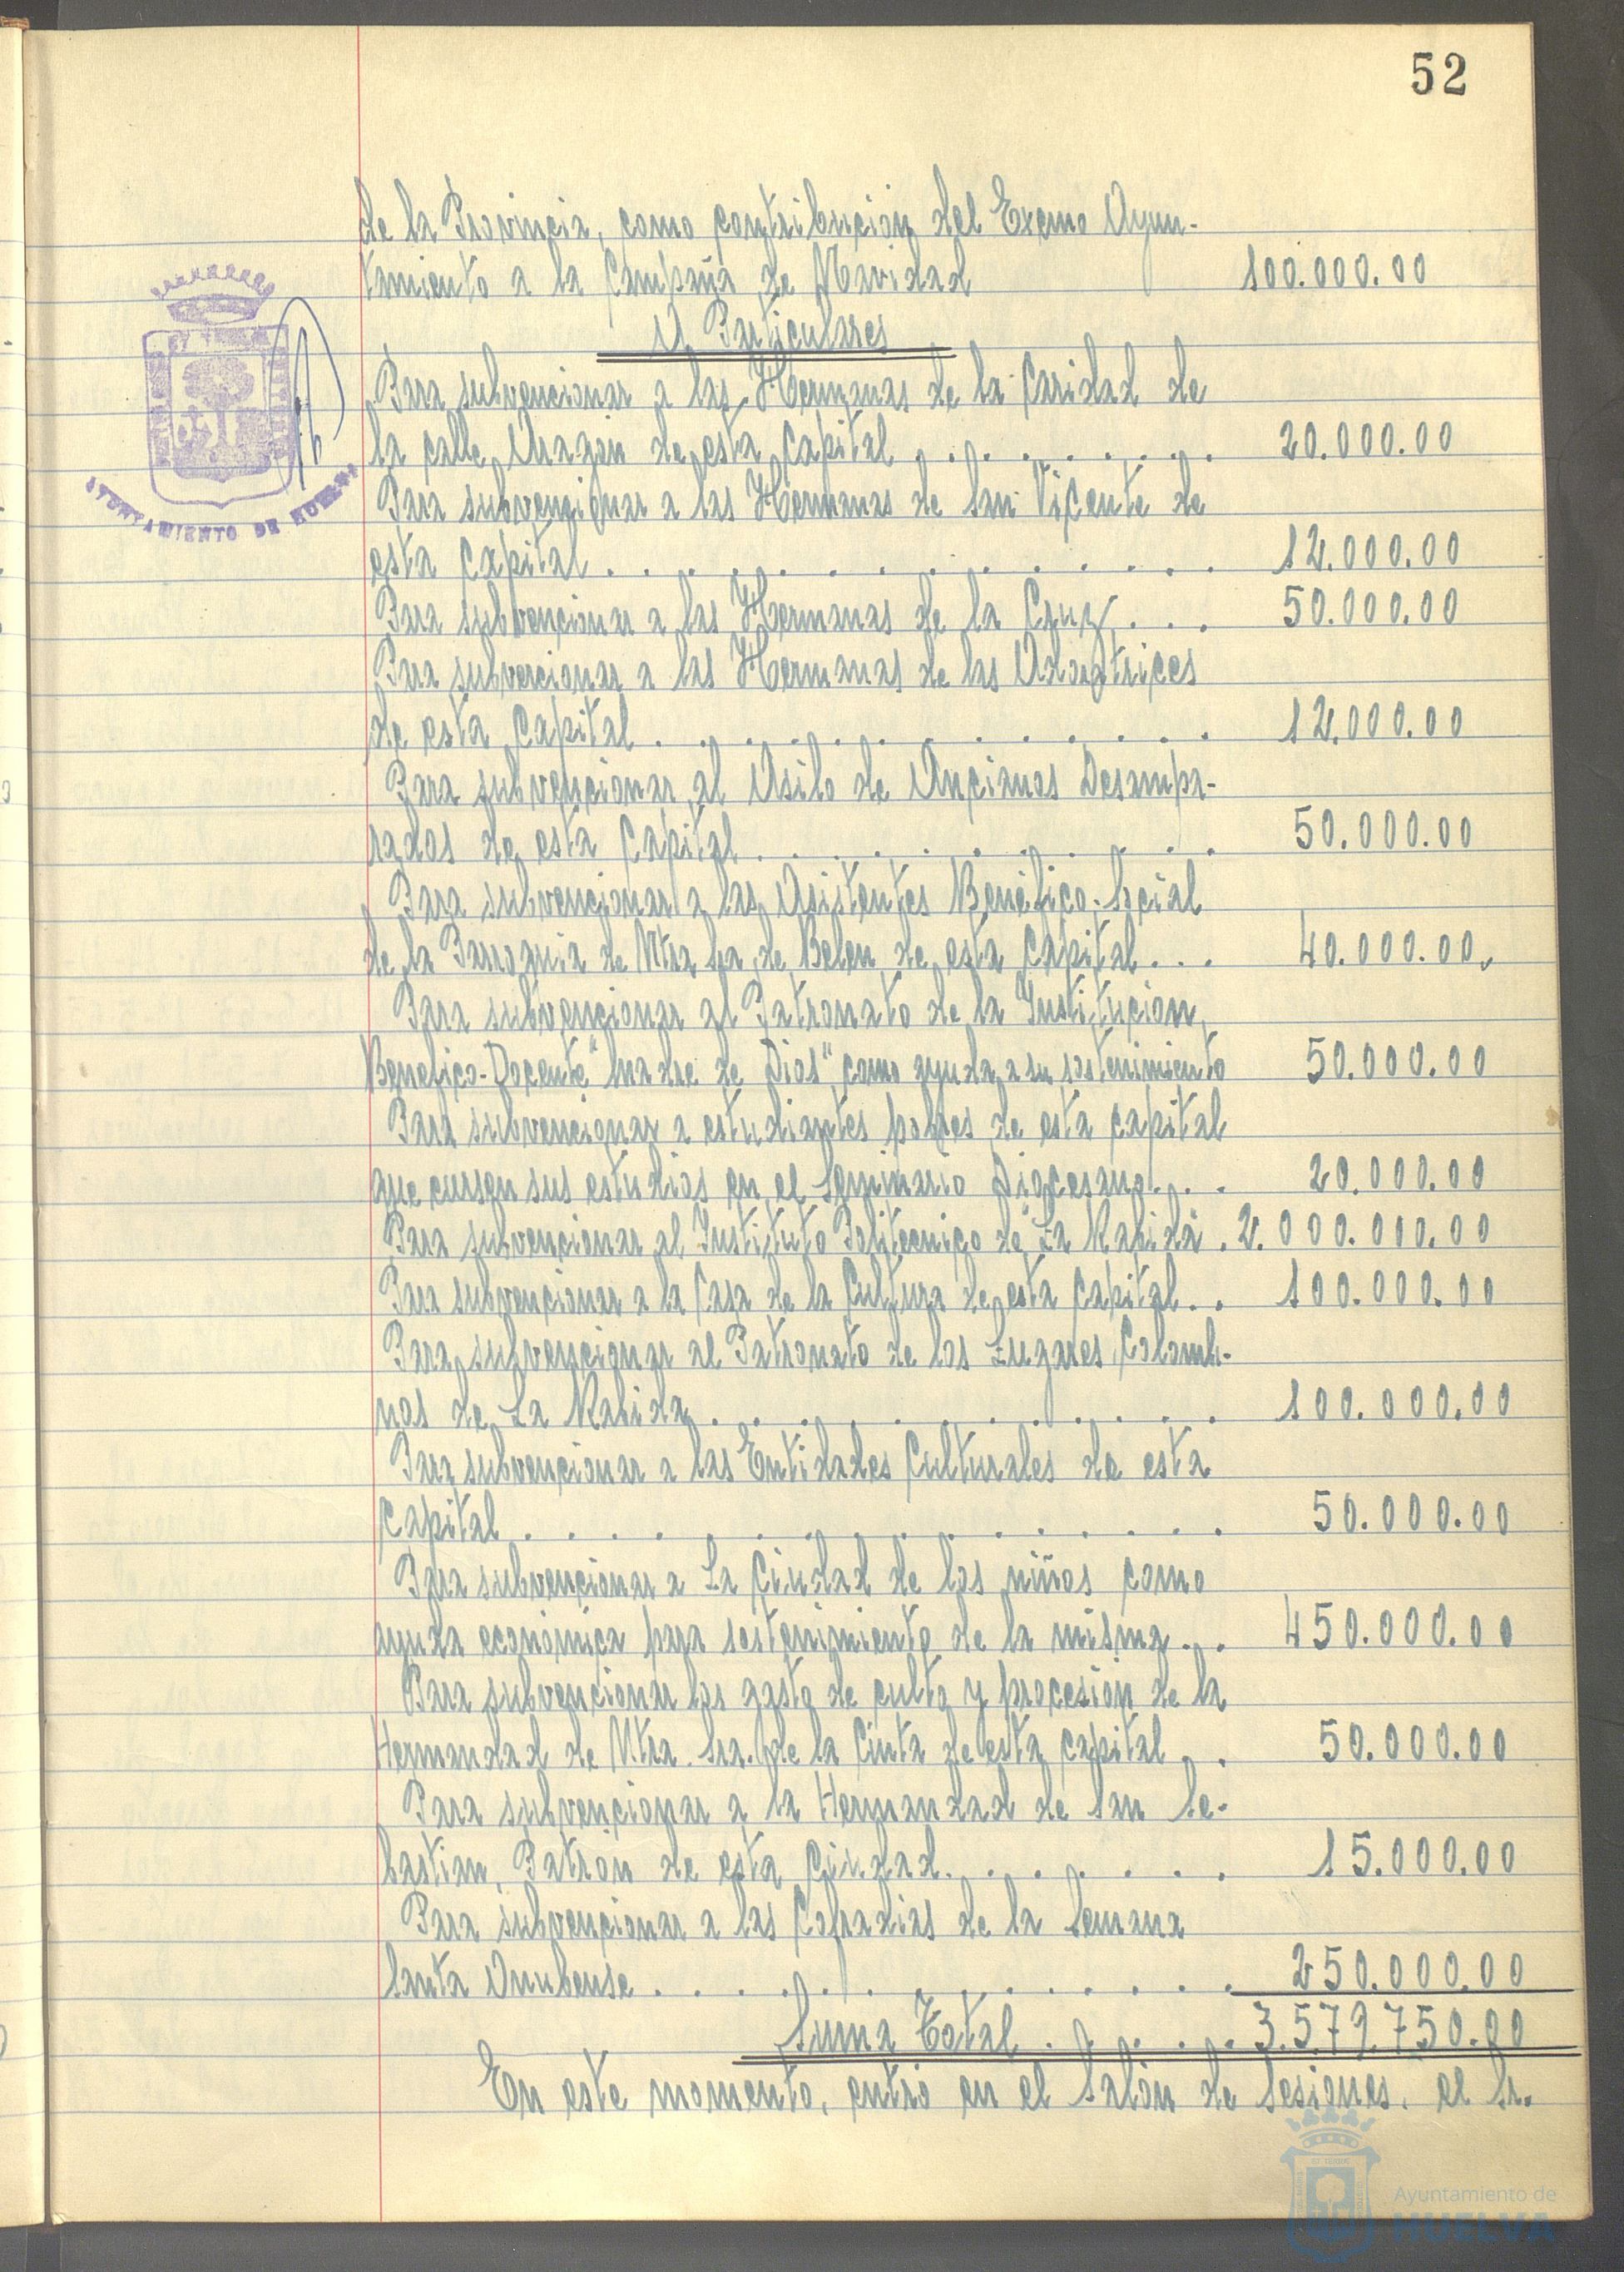 52
de la Provincia, como contribución del Excmo Ayun-
tamiento a la Campaña de Navidad 100.000.00
A Particulares
Para subvencionar a las Hermanas de la Caridad de
la calle Aragón de esta Capital . . . . . . . 20.000.00
Para subvencionar a las Hermanas de San Vicente de
esta Capital . . . . . . . . . . . . . . 12.000.00
Para subvencionar a las Hermanas de la Cruz . . . 50.000.00
Para subvencionar a las Hermanas de las Adoratrices
de esta Capital . . . . . . . . . . . . . 12.000.00
Para subvencionar al Asilo de Ancianos Desampa-
rados de esta Capital . . . . . . . . . . 50.000.00
Para subvencionar a las Asistentes Benéfico-Social
de la Parroquia de Ntra Sra de Belen de esta Capital . . . 40.000.00
Para subvencionar al Patronato de la Institución
Benefico-Docente "Madre de Dios" como ayuda a su sostenimiento 50.000.00
Para subvencionar a estudiantes pobres de esta capital
que cursen sus estudios en el Seminario Diocesano . . . 20.000.00
Para subvencionar al Instituto Politecnico de "La Rabida" . 2.000.000.00
Para subvencionar a la Casa de la Cultura de esta Capital . . 100.000.00
Para subvencionar al Patronato de los Lugares Colombi-
nos de La Rabida . . . . . . . . . . . . 100.000.00
Para subvencionar a las Entidades Culturales de esta
Capital . . . . . . . . . . . . . . . . 50.000.00
Para subvencionar a La Ciudad de los niños como
ayuda económica para sostenimiento de la misma . . 450.000.00
Para subvencionar los gasto de culto y procesión de la
Hermandad de Ntra. Sra. de la Cinta de esta capital . . 50.000.00
Para subvencionar a la Hermandad de San Se-
bastian, Patrón de esta Ciudad . . . . . . . 15.000.00
Para subvencionar a las Cofradias de la Semana
Santa Onubense . . . . . . . . . . . . . 250.000.00
Suma Total . . . . . 3.579.750.00
En este momento, entró en el Salón de Sesiones, el Sr.
AYUNTAMIENTO DE HUELVA
Ayuntamiento de
HUELVA